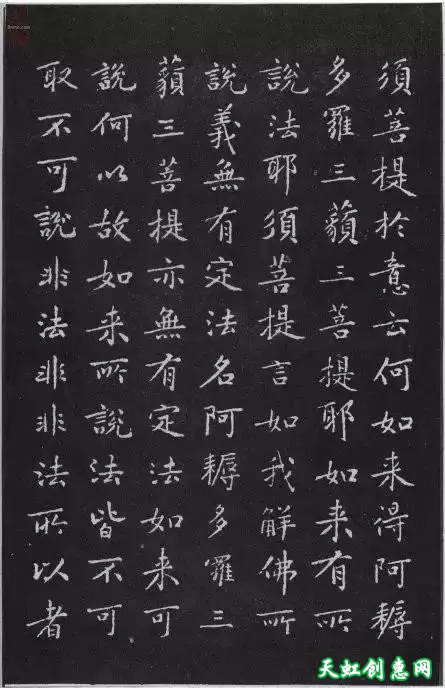 須菩提於意云何如来得阿耨
多羅三藐三菩提耶如来有所
說法耶須菩提言如我解佛所
說義無有定法名阿耨多羅三
藐三菩提亦無有定法如来可
說何以故如来所說法皆不可
取不可說非法非非法所以者
天虹创惠网